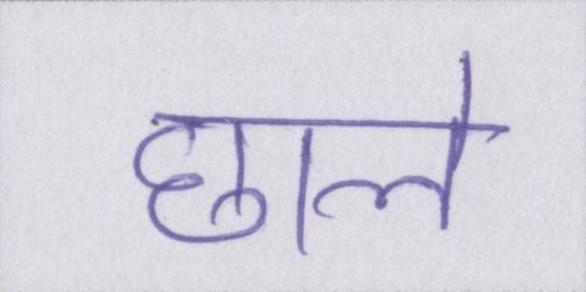 छाले